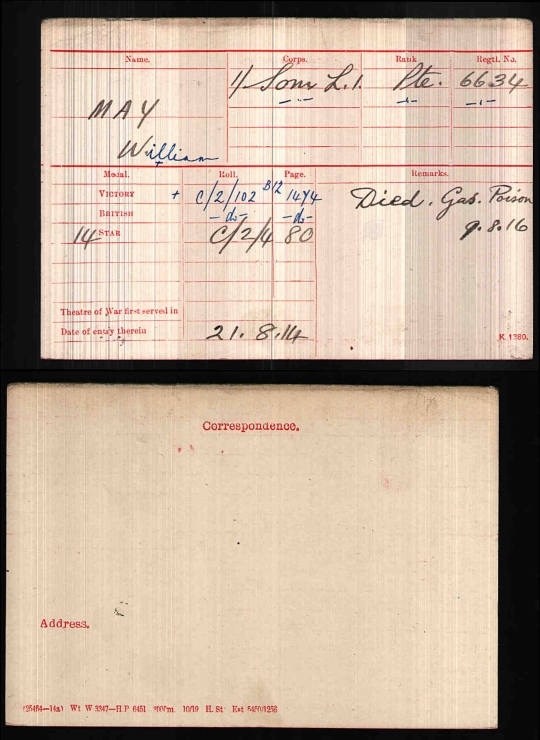 Name. Corps. Rank Regtl. No.
1/ Som L.I. Pte. 6634
MAY — " — — " — — " —
William
Medal. Roll. Page. Remarks.
VICTORY + C/2/102 B12 1474 Died. Gas. Poison
BRITISH — do — — do — 9.8.16
14 STAR C/2/4 80
Theatre of War first served in
Date of entry therein 21. 8. 14
K. 1380.
Correspondence.
Address.
(25454—14a) Wt W 3347—H.P 6451 10/19 H. St